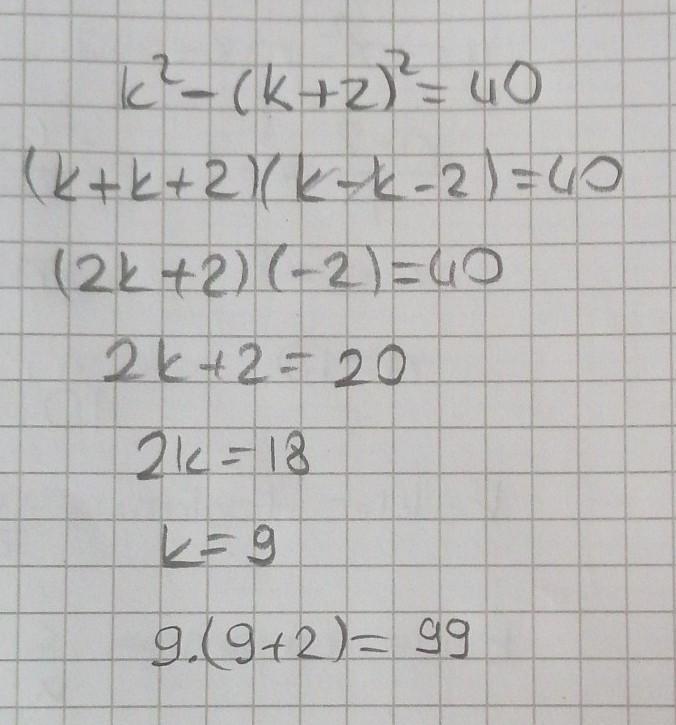 k²-(k+2)²=40
(k+k+2)(k-k-2)=40
(2k+2)(-2)=40
2k+2=20
2k=18
k=9
9.(9+2)=99